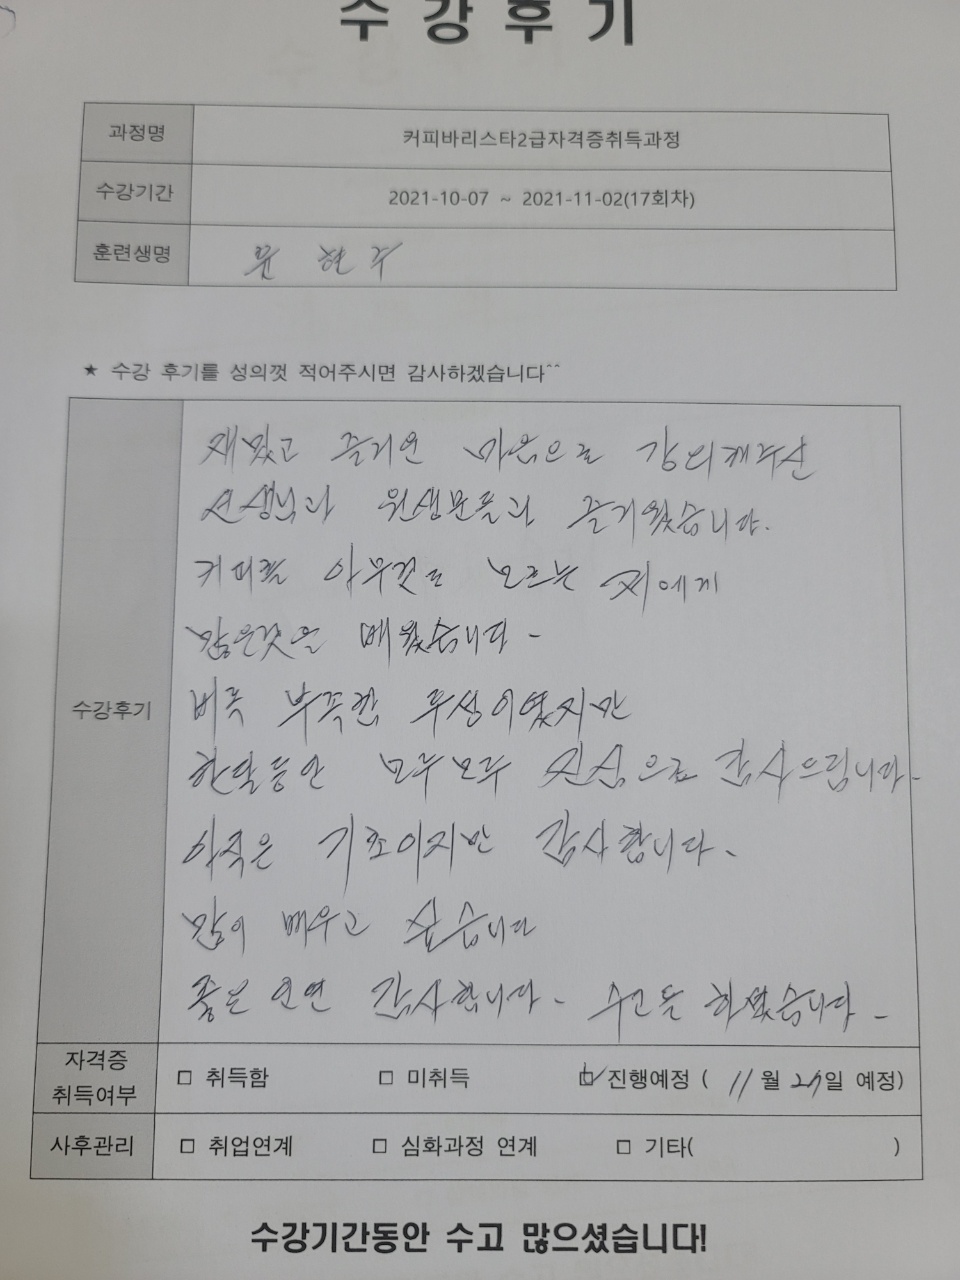 수강후기
과정명 커피바리스타2급자격증취득과정
수강기간 2021-10-07 ~ 2021-11-02(17회차)
훈련생명 윤 현 주
★ 수강 후기를 성의껏 적어주시면 감사하겠습니다^^
수강후기
재밌고 즐거운 마음으로 강의해주신
선생님과 원생분들과 즐거웠습니다.
커피를 아무것도 모르는 저에게
많은것을 배웠습니다-
비록 부족한 학생이였지만
한달동안 모두모두 진심으로 감사드립니다.
아직은 기초이지만 감사합니다.
많이 배우고 싶습니다
좋은 인연 감사합니다. 수고들 하셨습니다-
자격증
취득여부 □ 취득함 □ 미취득 ☑ 진행예정 ( 11월 27일 예정)
사후관리 □ 취업연계 □ 심화과정 연계 □ 기타( )
수강기간동안 수고 많으셨습니다!